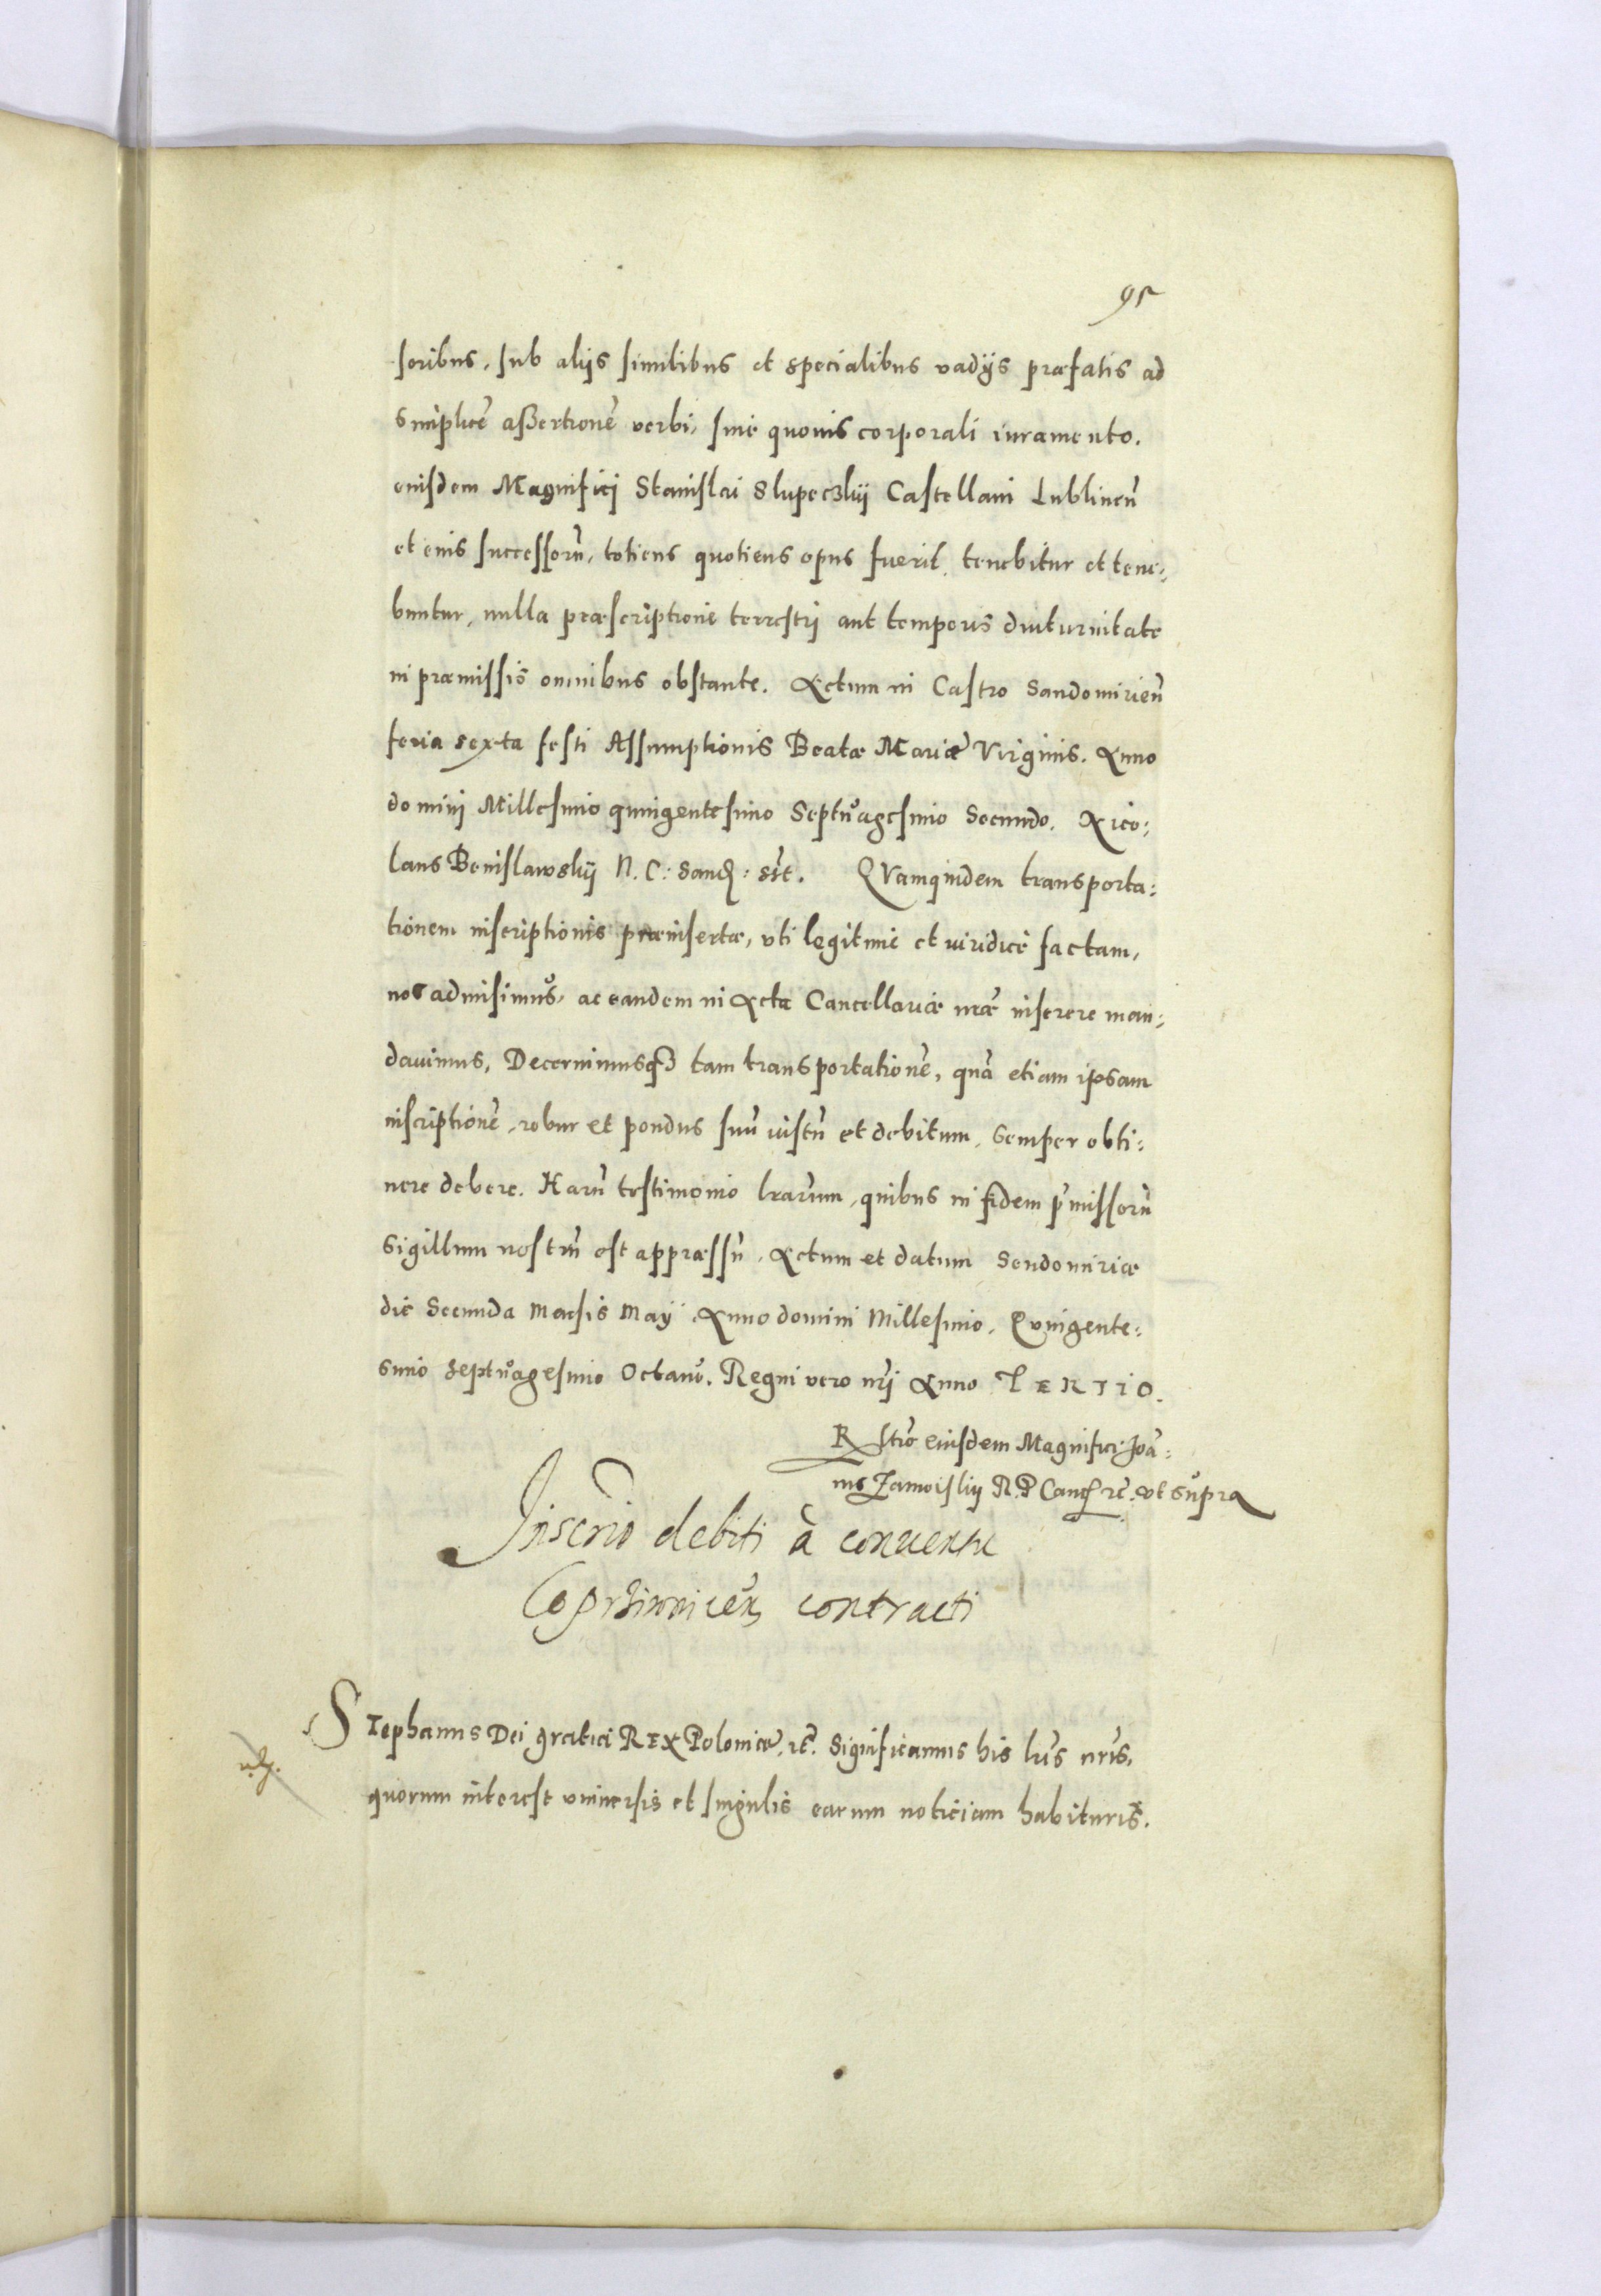 95
soribus, sub alijs similibus et specialibus vadijs præfatis ad
simplicē aßertionē verbi, sine quouis corporali iuramento.
eiusdem Magnifici Stanislai Slupeczkij Castellani Lublineñ
et eius successorū, totiens quotiens opus fuerit, tenebitur et tene:
buntur, nulla præscriptione terrestri aut temporis diuturnitate
in præmissis omnibus obstante. Actum in Castro Sandomirieñ
feria sexta festi Assumptionis Beatæ Mariæ Virginis. Anno
domini Millesimo quingentesimo Septuagesimo Secundo. Nico:
laus Benislawskij N. C: Sand: sst. Quamquidem transporta:
tionem inscriptionis præinsertæ, vti legitime et iuridice factam,
nos admisimus, ac eandem in Acta Cancellariæ nræ inserere man:
dauimus, Decernimusq3 tam transportationē, quā etiam ipsam
inscriptionē, robur et pondus suū iustū et debitum, semper obti:
nere debere. Harū testimonio lrarum, quibus in fidem pmissorū
sigillum nostrū est appræssū. Actum et datum Sendomiriæ
die Secunda Maesis Maij Anno domini Millesimo, Quingente:
simo septuagesimo Octauo. Regni vero nri Anno TERTIO.
R ltio eiusdem Magnifici Joā:
nis Zamoiskij R. P Canc rc. vt supra
Inscrio debiti à conuentu
Coprziwniceñ contracti
Stephanus Dei gratia REX Poloniæ, rc. Significamus his lris nris,
quorum interest vniuersis et singulis earum noticiam habituris.